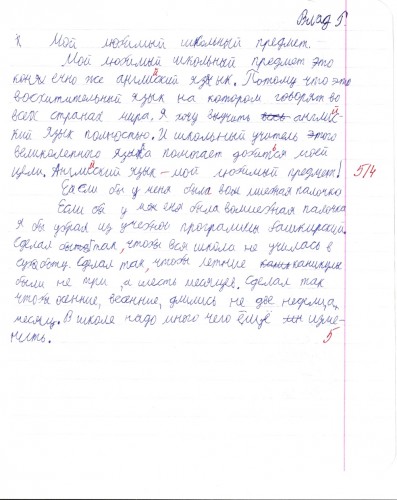 Влад Г.
1. Мой любимый школьный предмет.
Мой любимый школьный предмет это
конечно же английский язык. Потому что это
восхитительный язык на котором говорят во
всех странах мира. Я хочу выучить английс-
кий язык полностью. И школьный учитель этого
великолепного языка помогает добится моей
цели. Английский язык – мой любимый предмет!
5/4
Если бы у меня была волшебная палочка
Если бы у меня была волшебная палочка
я бы убрал из учебной программы башкирский.
Сделал так, чтобы вся школа не училась в
субботу. Сделал так, чтобы летние каникулы
были не три, а шесть месяцев. Сделал так
чтобы осенние, весенние, длились не две недели, а
месяц. В школе надо много чего ещё изме-
нить.
5